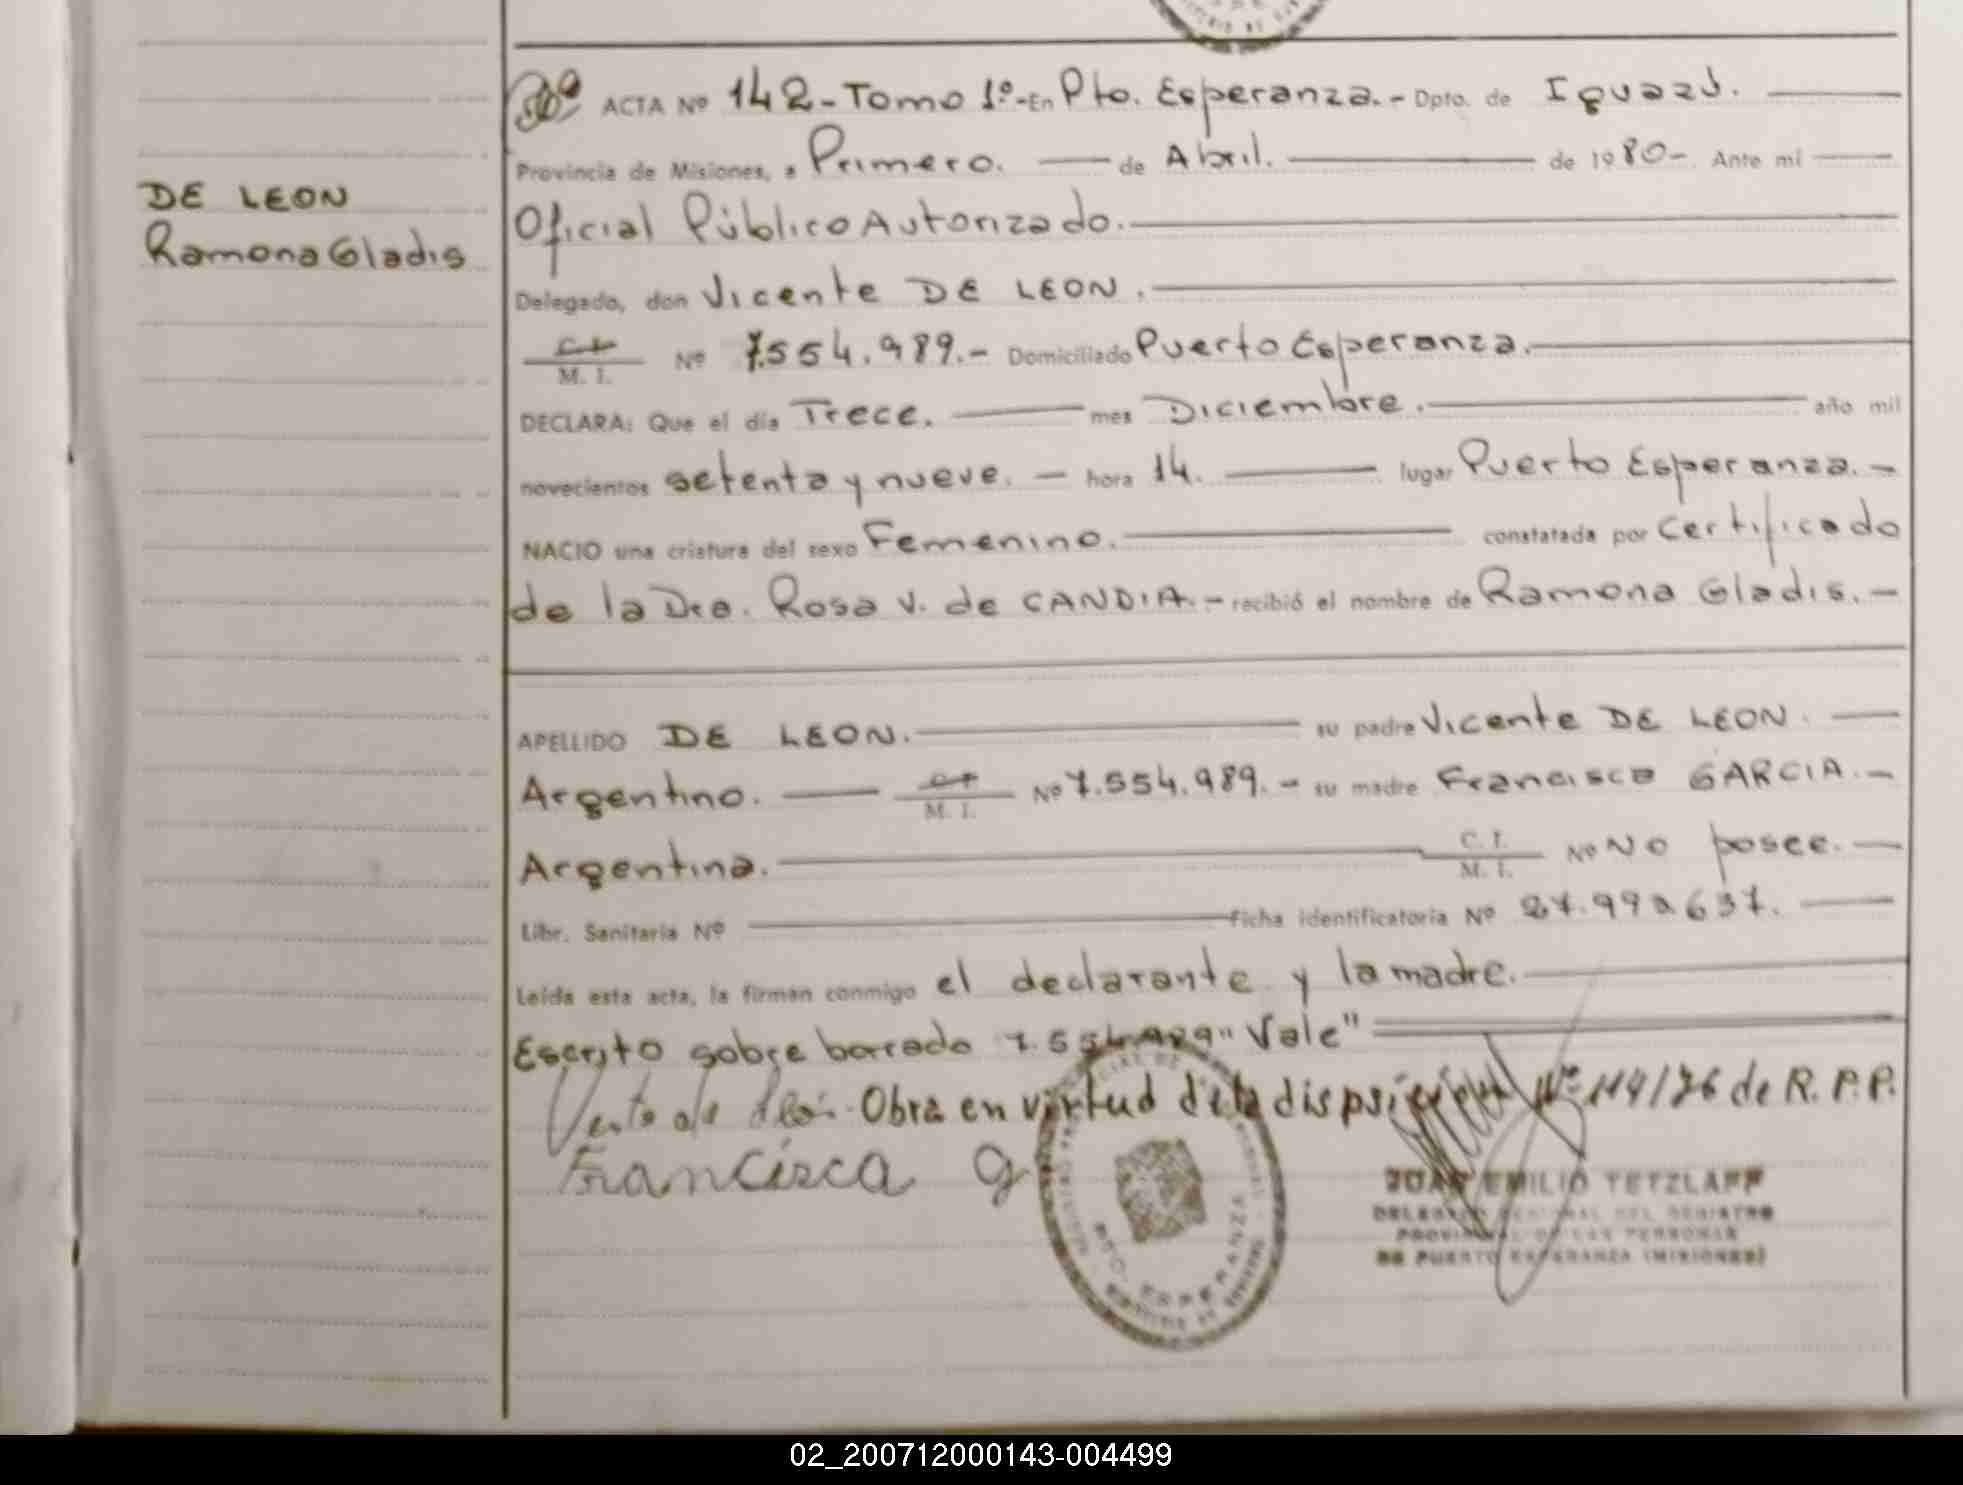 ACTA Nº 142-Tomo 1º-En Pto. Esperanza.- Dpto. de Iguazú.
Provincia de Misiones, a Primero. de Abril. de 1980-. Ante mí
DE LEON
Ramona Gladis
Oficial Público Autorizado.
Delegado, don Vicente DE LEON.
C.I. M. I. Nº 7.554.989.- Domiciliado Puerto Esperanza.
DECLARA: Que el día Trece. mes Diciembre. año mil
novecientos setenta y nueve. - hora 14. lugar Puerto Esperanza.-
NACIO una criatura del sexo Femenino. constatada por Certificado
de la Dra. Rosa V. de CANDIA.- recibió el nombre de Ramona Gladis.-
APELLIDO DE LEON. su padre Vicente DE LEON.
Argentino. C.I. M. I. Nº 7.554.989.- su madre Francisca GARCIA.-
Argentina. C. I. M. I. Nº No posee.-
Libr. Sanitaria Nº ficha identificatoria Nº 27.992637.
Leída esta acta, la firman conmigo el declarante y la madre.
Escrito sobre borrado 7.554.989" Vale"
de Obra en virtud de la dispsición Nº 114/76 de R.P.P.
Francisca g
JUAN EMILIO TETZLAFF
DELEGADO REGIONAL DEL REGISTRO
PROVINCIAL DE LAS PERSONAS
DE PUERTO ESPERANZA (MISIONES)
PTO. ESPERANZA
02_200712000143-004499